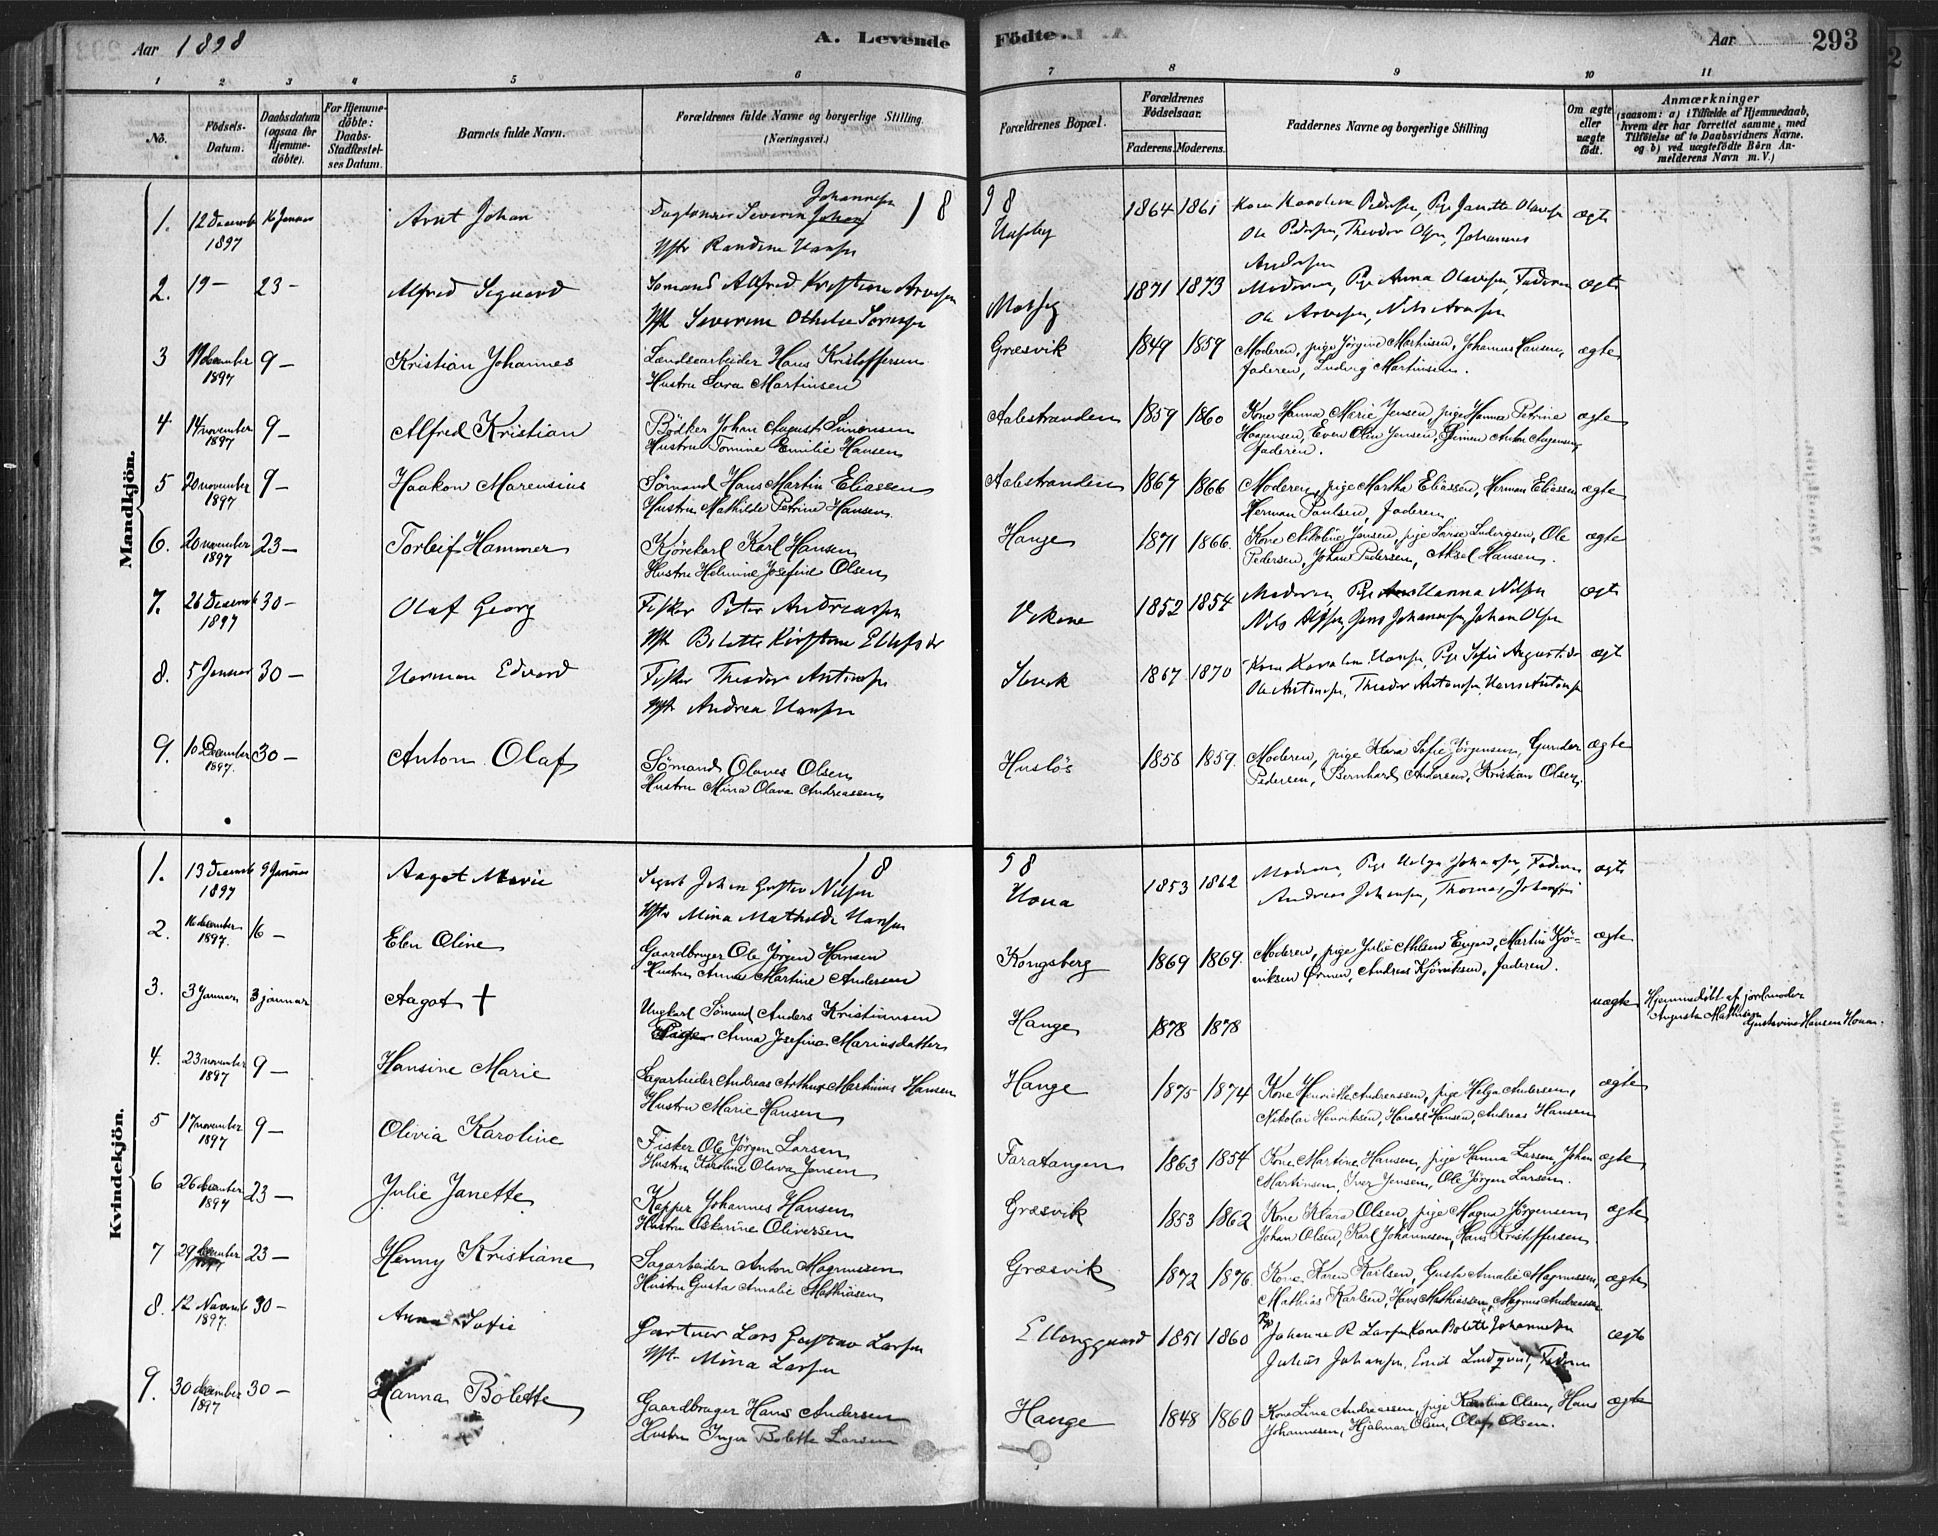 Aar 1898
A. Levende
Födte.
Aar
293
1 2 3 4 5 6 7 8 9 10 11
No.
Födsels-Datum.
Daabsdatum (ogsaa for Hjemme-döbte).
For Hjemme-döbte: Daabs-Stadfæstel-ses Datum.
Barnets fulde Navn.
Forældrenes fulde Navne og borgerlige Stilling. (Næringsvei.)
Forældrenes Bopæl.
Forældrenes Födselsaar.
Faderens. Moderens.
Faddernes Navne og borgerlige Stilling
Om ægte eller uægte födt.
Anmærkninger
(saasom: a) i Tilfælde af Hjemmedaab,
hvem der har forrettet samme, med
Tilföielse af to Daabsvidners Navne.
og b) ved uægtefödte Börn An-
melderens Navn m. V.)
Mandkjön.
18 98
1. 12 Decemb 1897 16 Januar Arnt Johan Dagl Severin Johannesen
Hstr Randine Hansen 1864 1861 Ole Pedersen, Theodor Olsen, Johannes Andersen ægte
2. 19 – 23 – Alfred Sigvard Sømand Alfred Kristian Arvesen
Severine Othelie Sørensen 1871 1873 Moderen, Pige Anna Olavesen, Faderen
Ole Arvesen, Nils Arvesen ægte
3 December 1897 9 – Kristian Johannes Landsearbeider Hans Kristoffersen
Hustru Sara Martinsen Græsvik 1849 1859 Moderen, pige Jørgine Martinsen, Johannes Hansen,
Faderen, Ludvig Martinsen. ægte
4 14 november 1897 9 – Alfred Kristian Bödker Johan August Simensen
Hustru Tomine Emilie Hansen Aalestranden 1859 1860 Kone Hanna Marie Jensen, pige Hanna Petrine
Haagensen, Even Olin Jensen, Simen Anton Aagensen,
Faderen. ægte
5 20 november 1897 9 – Haakon Marensius Sömand Hans Martin Eliassen
Hustru Mathilde Petrine Hansen Aalestranden 1867 1866 Moderen, pige Martha Eliassen, Herman Eliassen
Herman Paulsen, Faderen ægte
6. 20 november 1897 23 – Torleif Hammer Kjörekarl Karl Hansen
Hustru Helmine Josefine Olsen Hauge 1871 1866. Kone Nikoline Jensen, pige Ludvigsen, Ole
Pedersen, Johan Pedersen, Aksel Hansen. ægte
7. 26 Decemb 1897 30 – Olaf Georg Fisker Peter Andreassen
Hstr Bolette Kirstine Ellefsdr Vikene 1852 1854 Moderen, Pige Hanna Nilsen
Nils Jens Johannesen, Johan Olsen ægte
8. 5 Januar 30 – Herman Edvard Fisker Theodor Antonsen
Hstr Andrea Hansen 1867 1870 Hansen, Pige Sofie Augustsdr
Ole Antonsen, Theodor Antonsen, Hans Antonsen ægte
9. 10 December 1897. 30 – Anton Olaf Sömand Olaves Olsen
Hustru Mina Olava Andreassen Huslös 1858 1859. Moderen, pige Klara Sofie Jørgensen, Gunder
Pedersen, Bernhard Andersen, Kristian Olsen. ægte
Kvindekjön.
18 98
1. 13 Decemb 1897 9 Januar Aagot Marie Johan Gustav Nilsen
Hstr Mina Mathilde Hansen Houa 1853 1862 Moderen, Pige Helga Johansen, Faderen
Andreas Johansen, Thomas Johansen ægte
2. 16 december 1897. 16 – Elen Oline Gaardbruger Ole Jörgen Hansen
Hustru Anna Martine Andersen Kongsberg 1869 1869. Moderen, pige Julie Engen, Martin Kjö-
niksen, Andreas Kjöniksen, Faderen. ægte
3. 3 Januar 3 januar Aagot † Ungkarl Sömand Anders Kristiansen
Pige Anna Josefine Mariusdatter Hauge 1878 1878 uægte Hjemmedöbt af jordmoder
Augusta Mathisen
Gustavine Hansen Houa.
4. 23 november 1897 9 – Hansine Marie Sagarbeider Andreas Arthur Martinius Hansen
Hustru Marie Hansen Hauge 1875 1874 Kone Henriette Andreassen, pige Helga Andersen,
Nikolai Henriksen, Harald Hansen, Andreas Hansen ægte
5 17 november 1897 9 – Olivia Karoline Fisker Ole Jørgen Larsen
Hustru Karoline Olava Jensen Faratangen 1863 1854 Kone Martine Hansen, pige Hanna Larsen, Johan
Martinsen, Iver Jensen, Ole Jörgen Larsen. ægte
6 26 december 1897 23 – Julie Janette Kapper Johannes Hansen
Hustru Oskarine Oliversen Græsvik 1853 1862 Kone Klara Olsen, pige Magna Jörgensen
Johan Olsen, Karl Johannesen, Hans Kristoffersen ægte
7 29 december 23 – Henny Kristiane Sagarbeider Anton Magnussen
Hustru Gusta Amalie Mathiasen Græsvik 1872 1876 Kone Karen Karlsen, Gusta Amalie Magnussen,
Mathias Karlsen, Hans Mathiassen, Magnus Andreassen ægte
8. 12 Novemb 1897. 30 – Anna Sofie Gartner Lars Gustav Larsen
Hst. Mina Larsen 1851 1860 Johanne R. Larsen Kone Bolette Johannesen
Julius Johansen, Emil Lindqvist, Faderen ægte
9. 30 december 1897 30 – Hanna Bolette Gaardbruger Hans Andersen
Hustru Inger Bolette Larsen Hauge 1848 1860 Kone Lina Andreassen, pige Karoline Olsen, Hans
Johannesen, Hjalmar Olsen, Olaf Olsen. ægte